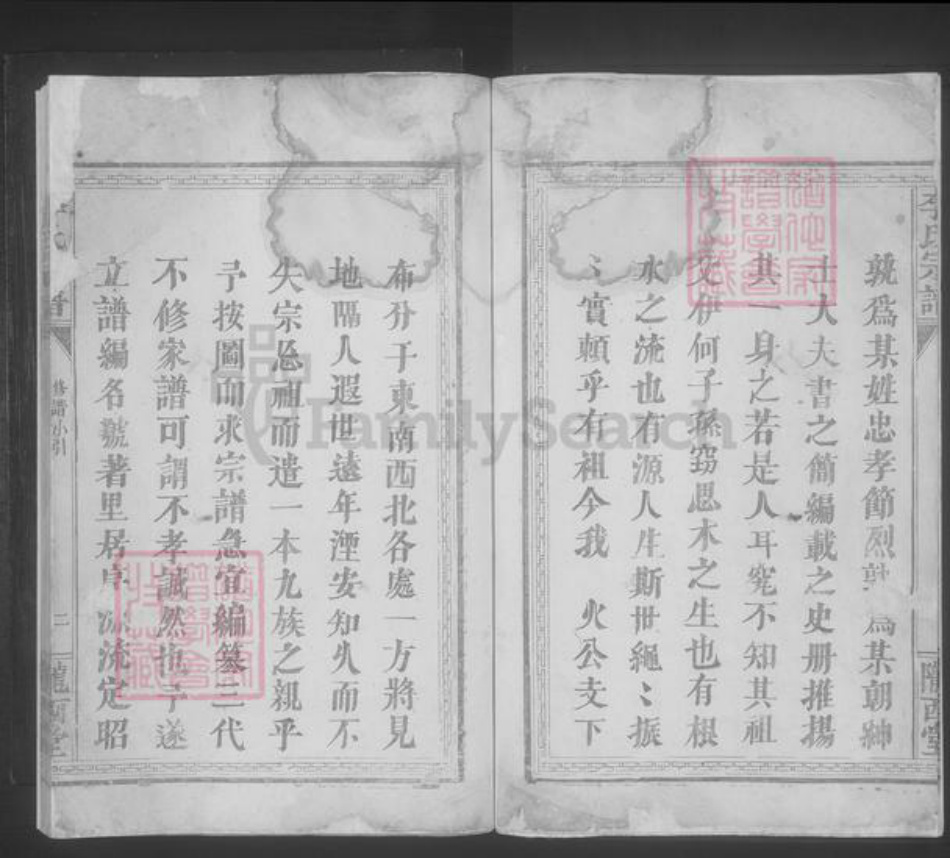 李氏宗譜
孰爲某姓忠孝節烈 爲某朝紳
士大夫書之簡編載之史册推揚
其一身之若是人耳究不知其祖
父伊何子孫窃思木之生也有根
水之流也有源人生斯世繩〻振
〻實賴乎有祖今我 火公支下
隴西堂
布分于東南西北各處一方將見
地隔人遐世遠年湮安知久而不
失宗忘祖而遣一本九族之親乎
予按圖而求宗譜急宜編纂三代
不修家譜可謂不孝誠然也予遂
立譜編名號著里居序 源流定昭
修譜小引
二
隴西堂
FamilySearch
譜學會
收藏
譜學會
收藏